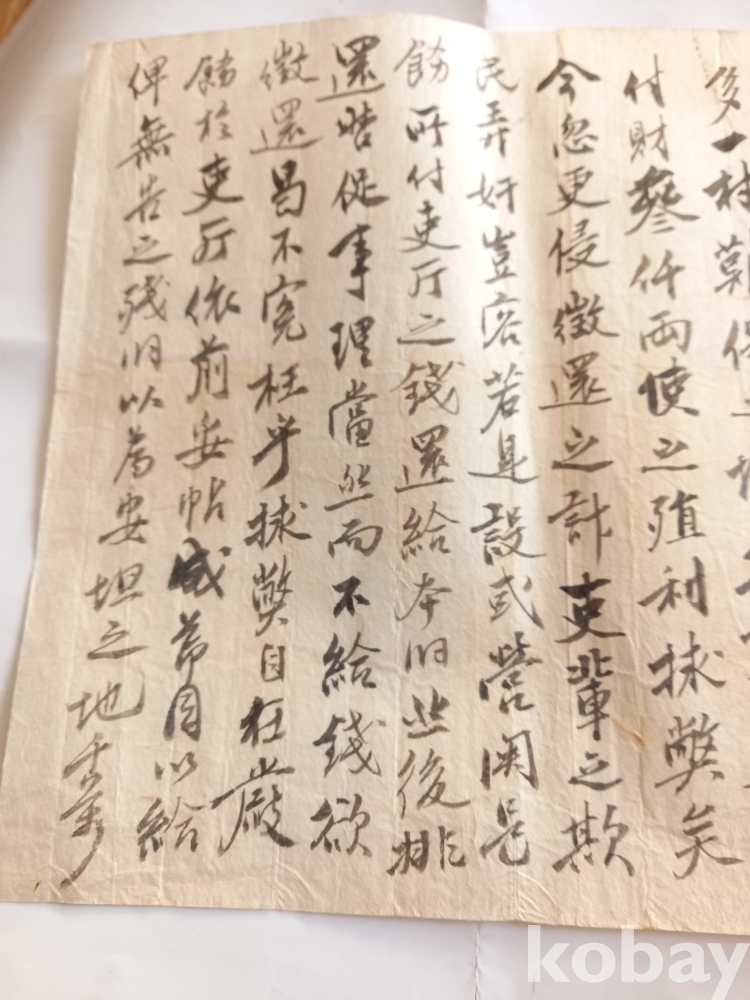 後一村難保之
付財參仟兩使之殖利捄獘矣
今忽更侵徵還之計吏輩之欺
民弄奸豈容若是設或營関是
飭所付吏厅之錢還給本旧然後排
還皓促事理當然而不給錢欲
徵還曷不寃枉乎捄獘目在嚴
飭於吏厅依前安帖成节目以給
俾無告之殘旧以為安坦之地千萬
kobay